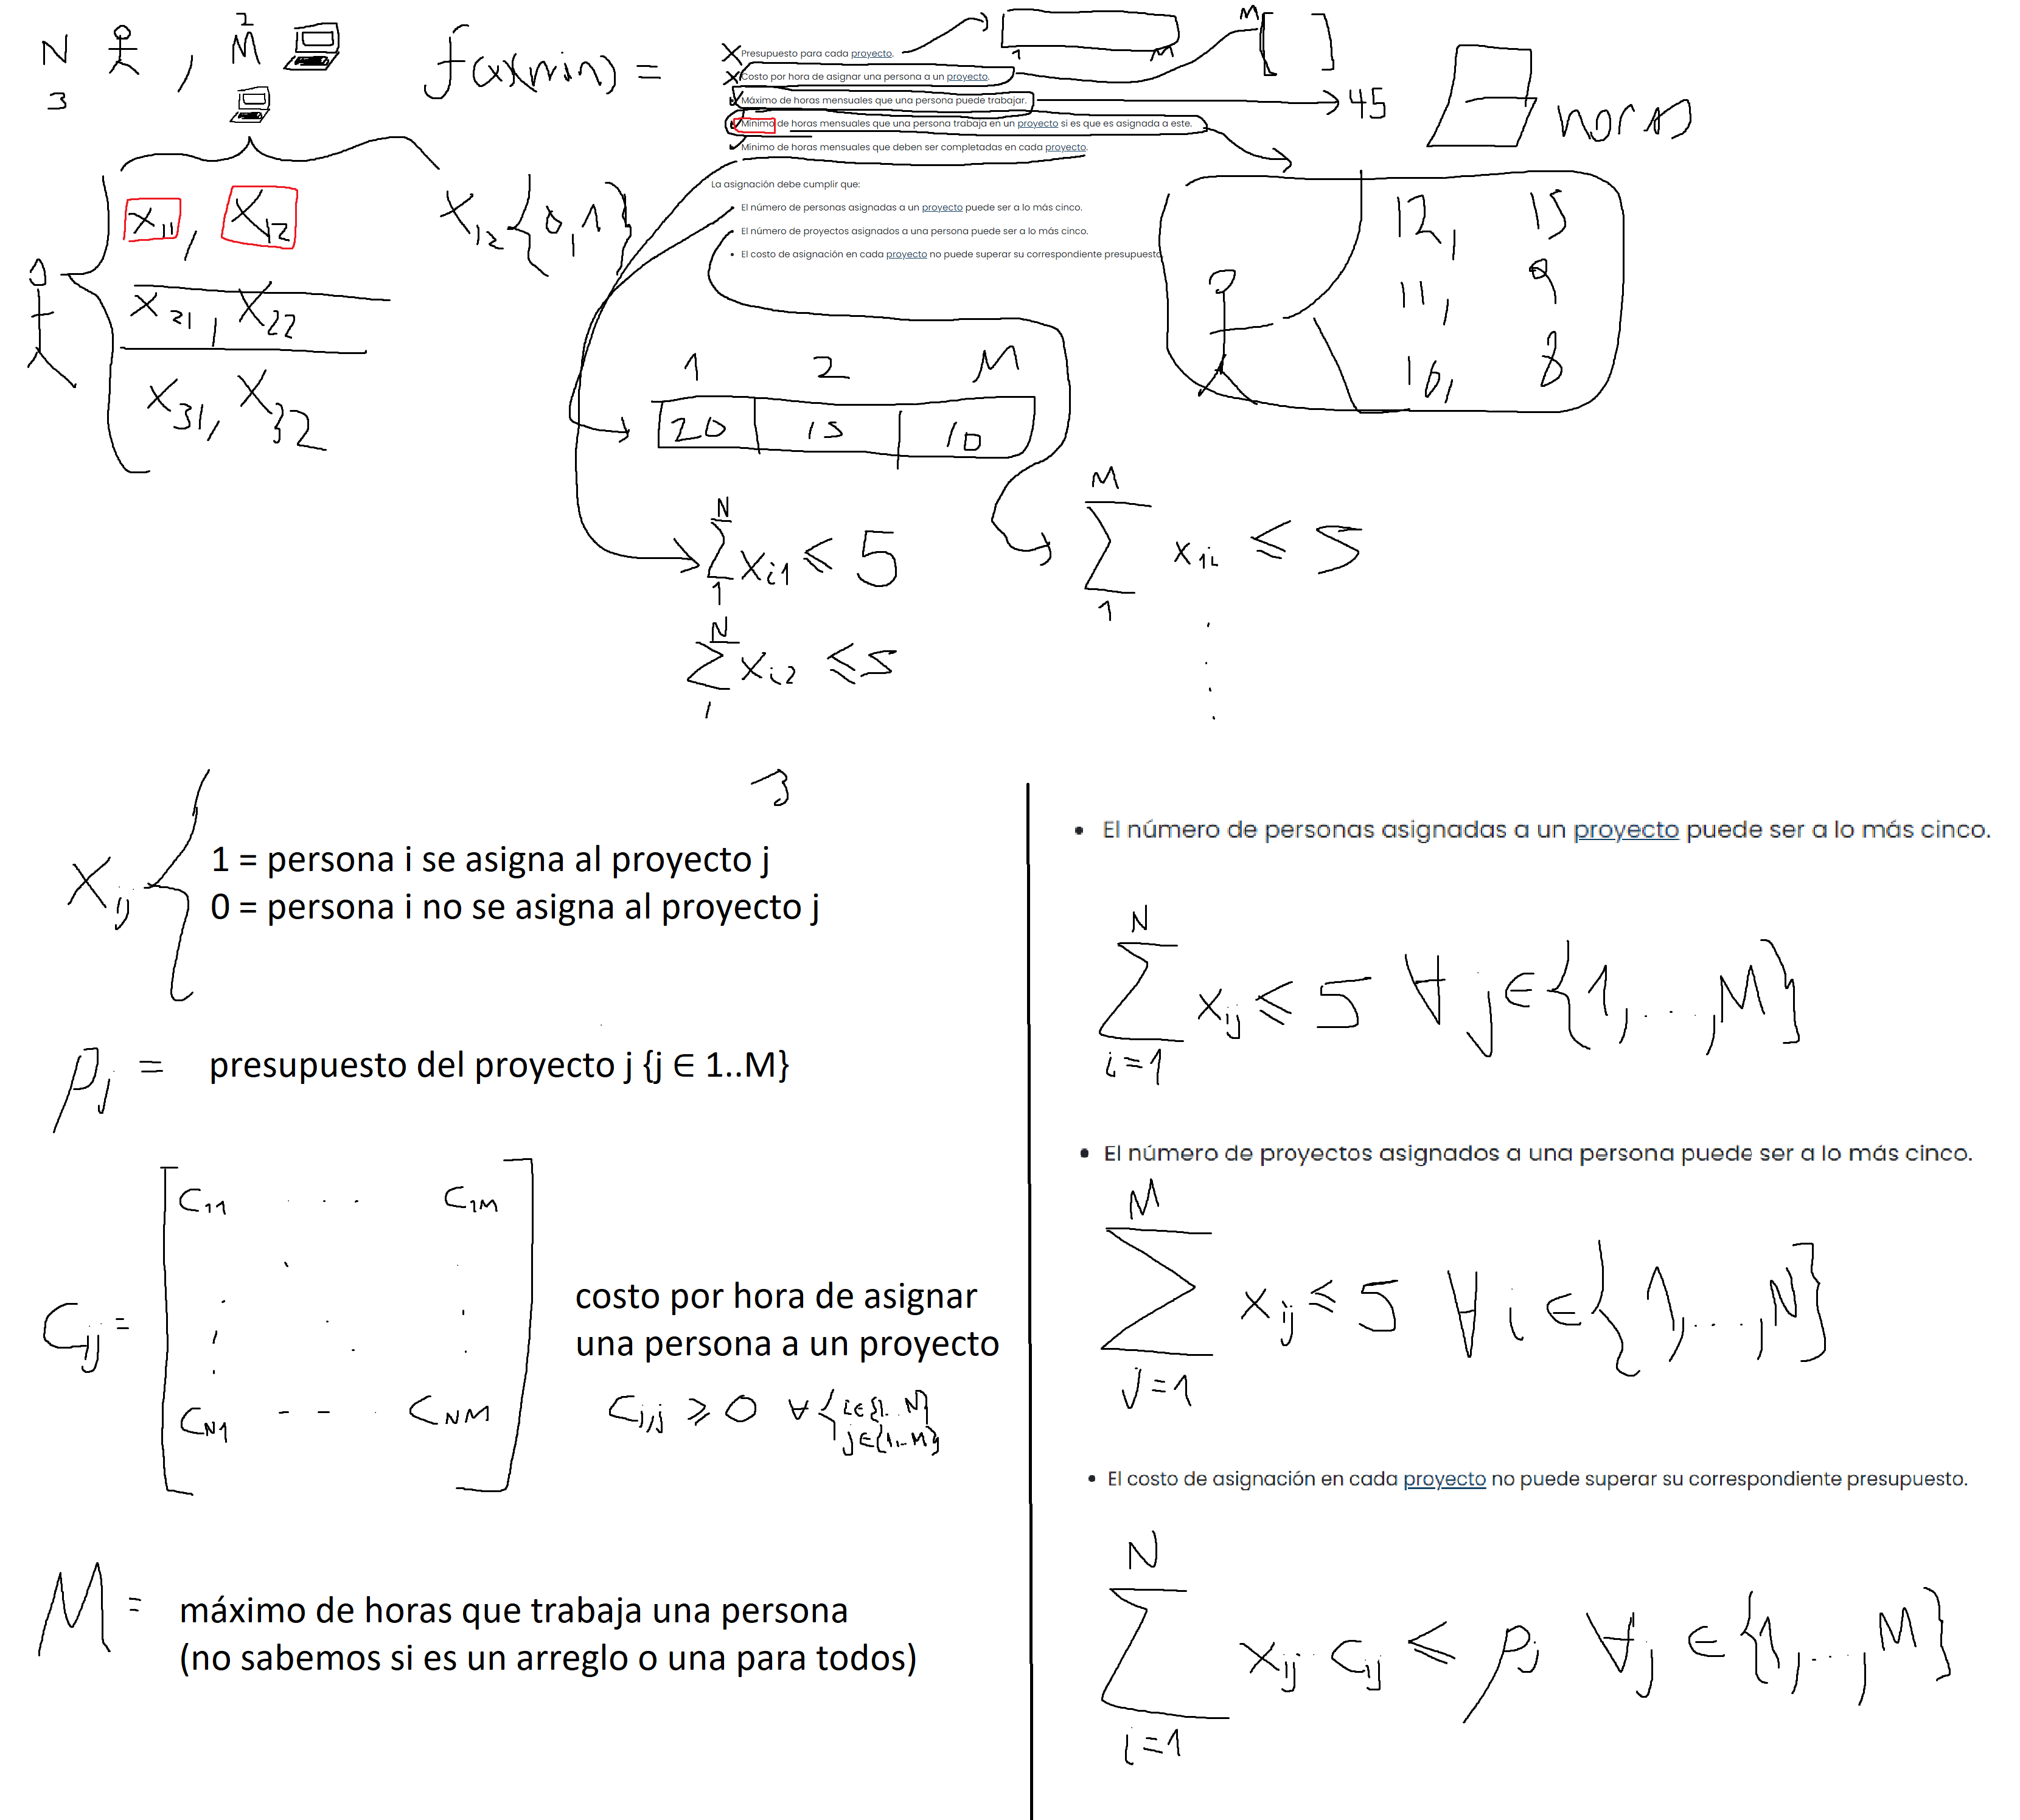 N , M 2 f(max/min) =
3
Presupuesto para cada proyecto.
1 M
M [ ]
Costo por hora de asignar una persona a un proyecto.
Máximo de horas mensuales que una persona puede trabajar. 45
horas
Mínimo de horas mensuales que una persona trabaja en un proyecto si es que es asignada a este.
Mínimo de horas mensuales que deben ser completadas en cada proyecto.
La asignación debe cumplir que:
• El número de personas asignadas a un proyecto puede ser a lo más cinco.
• El número de proyectos asignados a una persona puede ser a lo más cinco.
• El costo de asignación en cada proyecto no puede superar su correspondiente presupuesto
x11, x12
x21, x22
x31, x32
x12 {0,1}
12, 15
11, 9
16, 8
1 2 M
20 15 10
N ∑ 1 xi1 ≤ 5
N ∑ 1 xi2 ≤ 5
M ∑ 1 x1i ≤ 5
xij {
1 = persona i se asigna al proyecto j
0 = persona i no se asigna al proyecto j
pj = presupuesto del proyecto j {j ∈ 1..M}
Cij = [
C11 . . . C1M
CN1 - - . CNM
]
costo por hora de asignar
una persona a un proyecto
Ci,j ≥ 0 ∀ { i∈{1..N}
j∈{1..M}
M = máximo de horas que trabaja una persona
(no sabemos si es un arreglo o una para todos)
• El número de personas asignadas a un proyecto puede ser a lo más cinco.
N ∑ i=1 xij ≤ 5 ∀ j ∈ {1,...,M}
• El número de proyectos asignados a una persona puede ser a lo más cinco.
M ∑ j=1 xij ≤ 5 ∀ i ∈ {1,...,N}
• El costo de asignación en cada proyecto no puede superar su correspondiente presupuesto.
N ∑ i=1 xij · cij ≤ pj ∀j ∈ {1,...,M}